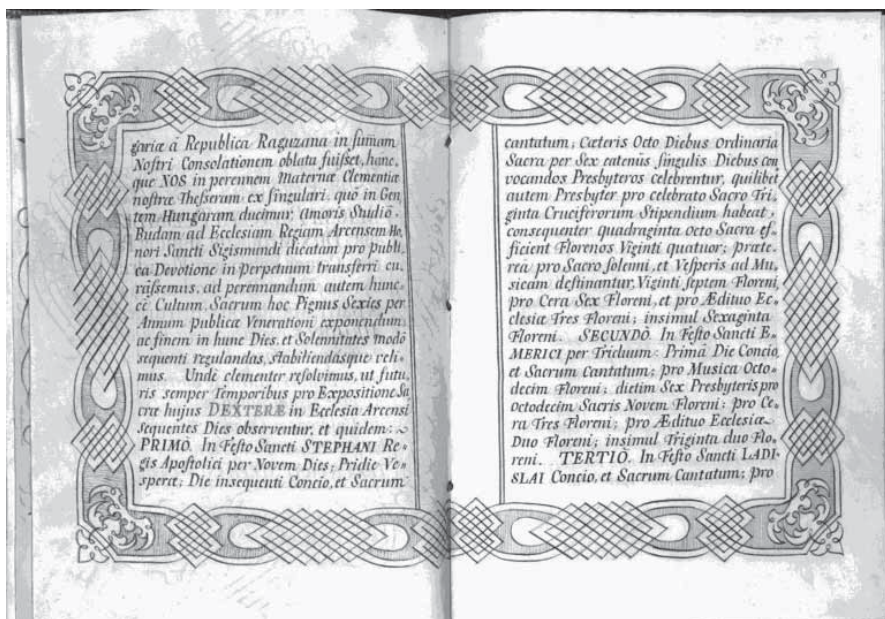 gariæ á Republica Raguzana in sum̃am
Nostri Consolationem oblata fuisset, hanc,
que NOS in perennem Maternæ Clementiæ
nostræ Thesseram ex singulari, quô in Gen
tem Hungaram ducimur, Amoris Studiô,
Budam ad Ecclesiam Regiam Arcensem Ho,
nori Sancti Sigismundi dicatam pro publi,
ca Devotione in perpetuum transferri cu,
râssemus, ad perennandum autem hunc,
cè Cultum, Sacrum hoc Pignus Sexies per
Annum publicæ Venerationi exponendum
ac finem in hunc Dies, et Solennitates modô
sequenti regulandas, stabiliendasque veli,
mus. Unde clementer resolvimus, ut futu,
ris semper Temporibus pro Expositione Sa
cræ hujus DEXTERÆ in Ecclesia Arcensi
sequentes Dies observentur, et quidem:
PRIMÒ. In Festo Sancti STEPHANI Re,
gis Apostolici per Novem Dies; Pridie Ve,
speræ; Die insequenti Concio, et Sacrum
cantatum; Cæteris Octo Diebus Ordinaria
Sacra per Sex eatenùs singulis Diebus con
vocandos Presbyteros celebrentur, quilibet
autem Presbyter pro celebrato Sacro Tri,
ginta Cruciferorum Stipendium habeat,
consequenter quadraginta octo Sacra ef,
ficient Florenos Viginti quatuor; præte,
rea pro Sacro solenni, et Vesperis ad Mu,
sicam destinantur Viginti septem Floreni,
pro Cera Sex Floreni, et pro Ædituo Ec,
clesiæ Tres Floreni; insimul Sexaginta
Floreni. SECUNDÒ. In Festo Sancti E,
MERICI per Triduum: Primâ Die Concio,
et Sacrum Cantatum; pro Musica Octo,
decim Floreni; dietim Sex Presbyteris pro
Octodecim Sacris Novem Floreni; pro Ce,
ra Tres Floreni; pro Ædituo Ecclesiæ
Duo Floreni; insimul Triginta duo Flo,
reni. TERTIÒ. In Festo Sancti LADI,
SLAI Concio, et Sacrum Cantatum; pro